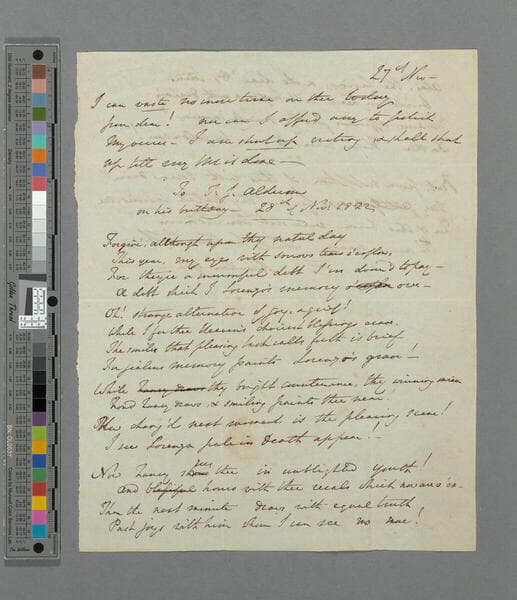 27th Nov—
I can waste no more time on thee to day
from dear! nor can I afford any to polish
my verse— I am shut up writing & shall shut
up till my is done—
To T. J. Alderson
on his birthday— 28th of Novr 1822
Forgive, although upon thy natal day
This year, my eyes with sorrow's tears o'erflow,
For they're a mournful debt I'm doom'd to pay—
A debt which I Lorenzo's memory owe—
Oh! strange alternation of joy, & grief!
While I for thee Heaven's choicest blessings crave,
The smiles that pleasing task calls forth is brief
For jealous memory paints Lorenzo's grave!
While thy bright countenance, thy winning mien
Fond fancy draws, & smiling paints thee near
How chang'd next moment is the pleasing scene!
I see Lorenzo pale in Death appear!—
Now fancy sees thee in unblighted youth!
and hours with thee recals which now are o'er
Then the next minute draws with equal truth
Past joys with him whom I can see no more!
Gilder Tweed